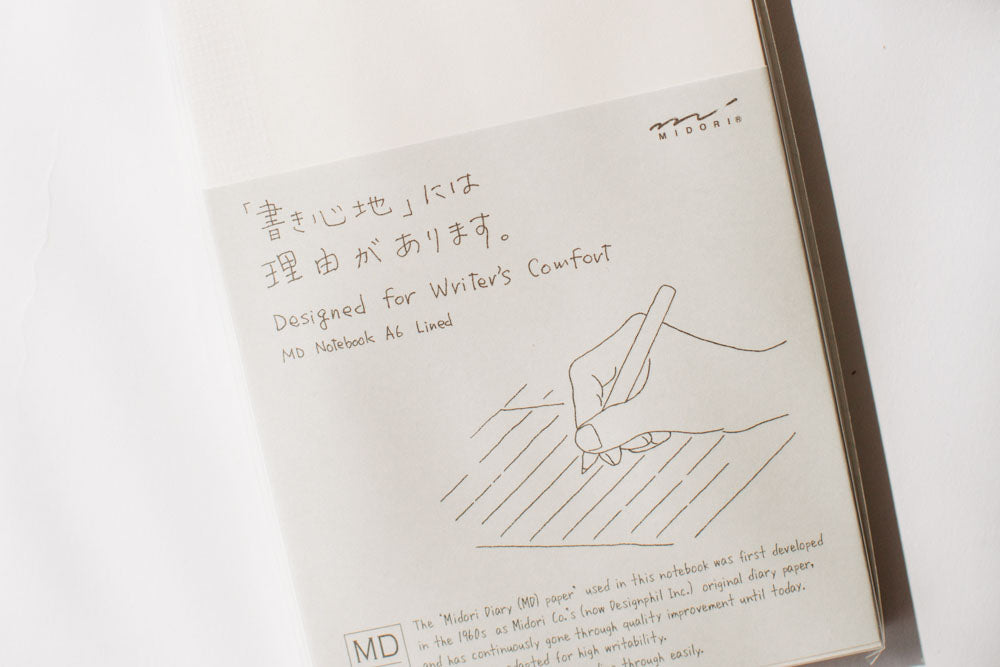 MIDORI®
「書き心地」には
理由があります。
Designed for Writer's Comfort
MD Notebook A6 Lined
MD
The "Midori Diary (MD) paper" used in this notebook was first developed
in the 1960s as Midori Co.'s (now Designphil Inc.) original diary paper,
and has continuously gone through quality improvement until today.
adapted for high writability.
through easily.